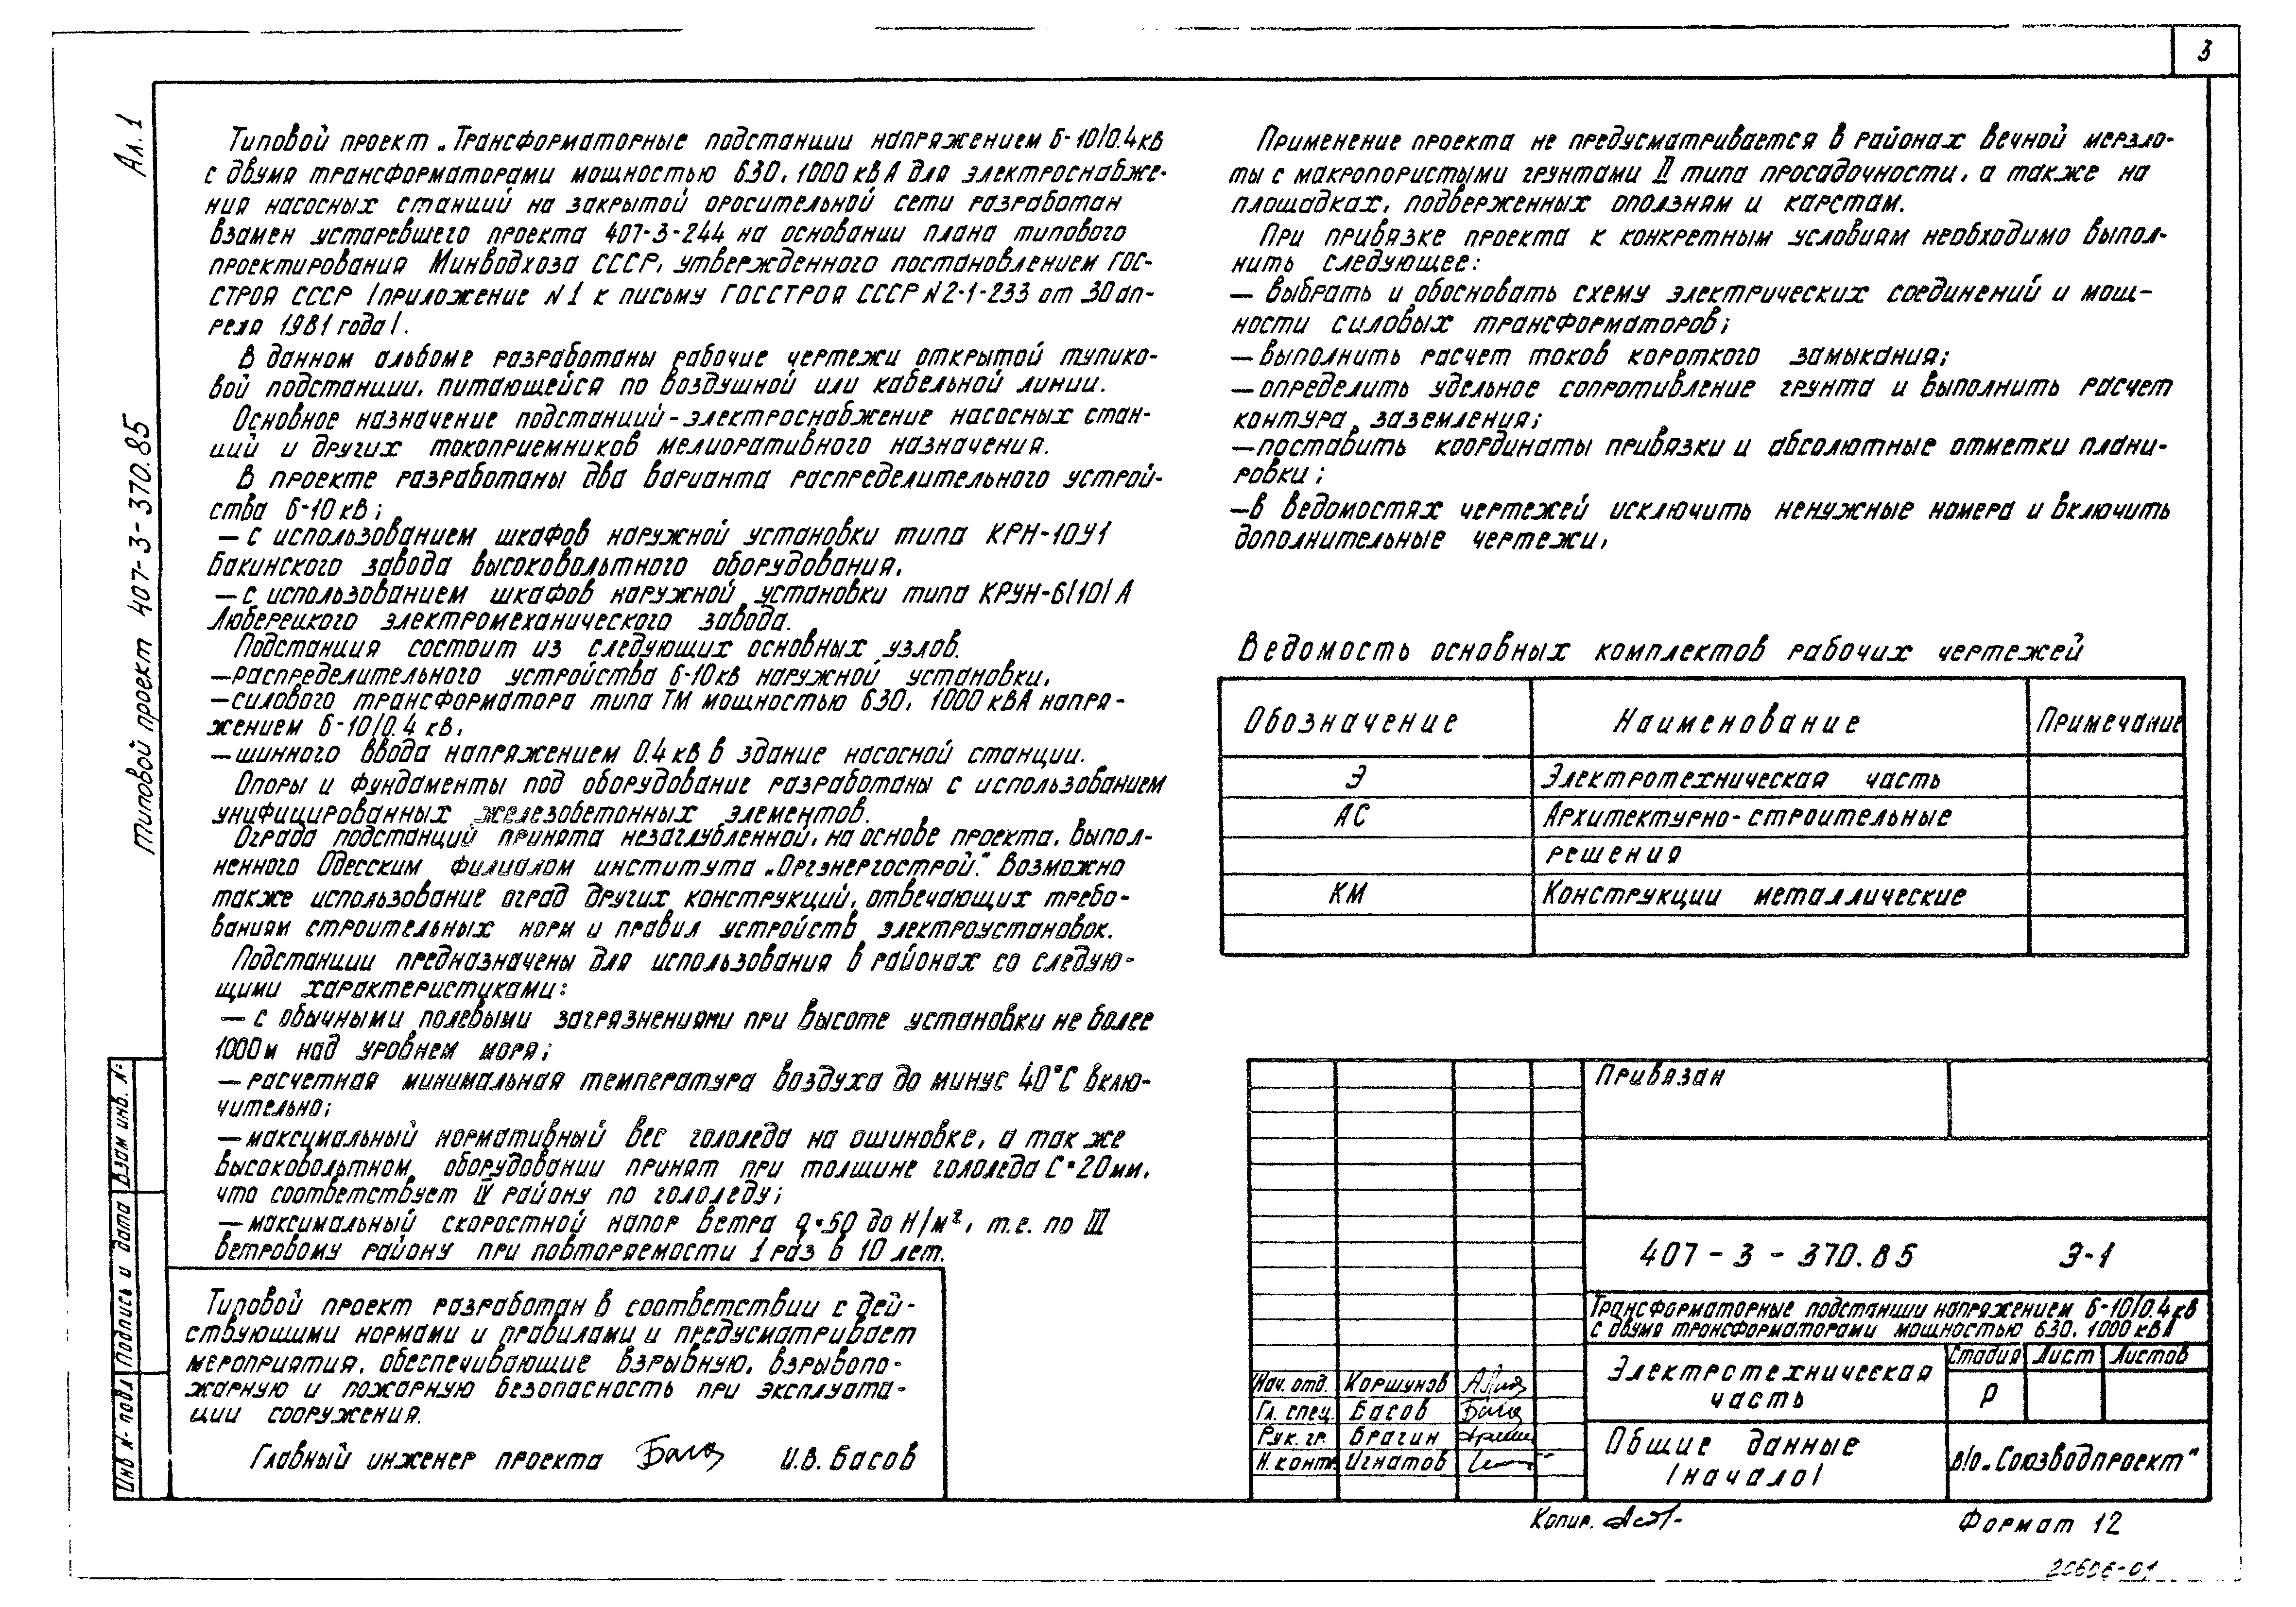 3
Ал. 1
Типовой проект 407-3-370.85
Типовой проект „Трансформаторные подстанции напряжением 6-10/0.4кв
с двумя трансформаторами мощностью 630, 1000 кВА для электроснабже-
ния насосных станций на закрытой оросительной сети разработан
взамен устаревшего проекта 407-3-244 на основании плана типового
проектирования Минводхоза СССР, утвержденного постановлением Гос-
строя СССР /приложение N1 к письму Госстроя СССР N2-1-233 от 30 ап-
реля 1981 года/.
В данном альбоме разработаны рабочие чертежи открытой тупико-
вой подстанции, питающейся по воздушной или кабельной линии.
Основное назначение подстанций-электроснабжение насосных стан-
ций и других токоприемников мелиоративного назначения.
В проекте разработаны два варианта распределительного устрой-
ства 6-10 кВ;
— с использованием шкафов наружной установки типа КРН-10У1
Бакинского завода высоковольтного оборудования,
— с использованием шкафов наружной установки типа КРУН-6/10/А
Люберецкого электромеханического завода.
Подстанция состоит из следующих основных узлов.
—распределительного устройства 6-10кв наружной установки,
—силового трансформатора типа ТМ мощностью 630, 1000 кВА напря-
жением 6-10/0.4 кв,
—шинного ввода напряжением 0.4 кв в здание насосной станции.
Опоры и фундаменты под оборудование разработаны с использованием
унифицированных железобетонных элементов.
Ограда подстанций принята незаглубленной, на основе проекта, выпол-
ненного Одесским филиалом института „Оргэнергострой". Возможно
также использование оград других конструкций, отвечающих требо-
ваниям строительных норм и правил устройств электроустановок.
Подстанции предназначены для использования в районах со следую-
щими характеристиками:
— с обычными полевыми загрязнениями при высоте установки не более
1000м над уровнем моря;
— расчетная минимальная температура воздуха до минус 40°С вклю-
чительно;
—максимальный нормативный вес гололеда на ошиновке, а так же
высоковольтном оборудовании принят при толщине гололеда С=20мм,
что соответствует IV району по гололеду;
—максимальный скоростной напор ветра q=50 до Н/м², т.е. по III
ветровому району при повторяемости 1 раз в 10 лет.
Типовой проект разработан в соответствии с дей-
ствующими нормами и правилами и предусматривает
мероприятия, обеспечивающие взрывную, взрывопо-
жарную и пожарную безопасность при эксплуата-
ции сооружения.
Главный инженер проекта И.В. Басов
Применение проекта не предусматривается в районах вечной мерзло-
ты с макропористыми грунтами II типа просадочности, а также на
площадках, подверженных оползням и карстам.
При привязке проекта к конкретным условиям необходимо выпол-
нить следующее:
— выбрать и обосновать схему электрических соединений и мощ-
ности силовых трансформаторов;
—выполнить расчет токов короткого замыкания;
—определить удельное сопротивление грунта и выполнить расчет
контура заземления;
—поставить координаты привязки и абсолютные отметки плани-
ровки;
—в ведомостях чертежей исключить ненужные номера и включить
дополнительные чертежи,
Ведомость основных комплектов рабочих чертежей
Обозначение Наименование Примечание
Э Электротехническая часть
АС Архитектурно-строительные
решения
КМ Конструкции металлические
Привязан
407-3-370.85 Э-1
Трансформаторные подстанции напряжением 6-10/0.4 кв
с двумя трансформаторами мощностью 630, 1000 кВА
Электротехническая
часть
Стадия Лист Листов
Р
Общие данные
/начало/
в/о „Союзводпроект"
Нач. отд. Коршунов
Гл. спец. Басов
Рук. гр. Брагин
Н. контр. Игнатов
Инв N- подл Подпись и дата Взам инв. N-
Копир.
Формат 12
20606-01